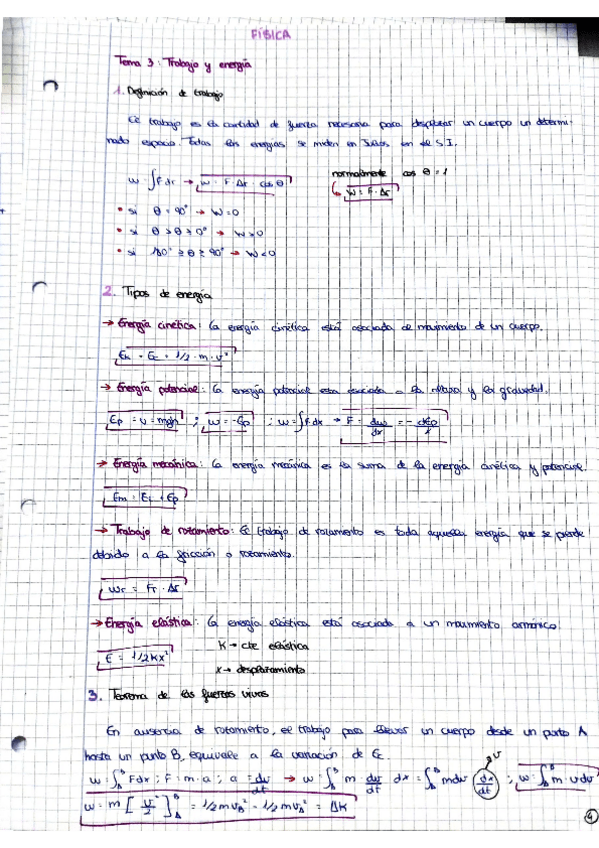 FÍSICA
Tema 3: Trabajo y energía
1. Definición de trabajo
El trabajo es la cantidad de fuerza necesaria para desplazar un cuerpo un determi-
nado espacio. Todas las energías se miden en Julios en el S.I.
w = ∫Fdr → w = F · Δr · cos θ
normalmente cos θ = 1
↳ W = F · Δr
• si θ = 90° → W=0
• si θ > 0° → W>0
• si 180° ≥ θ ≥ 90° → W<0
2. Tipos de energía
→ Energía cinética: la energía cinética está asociada al movimiento de un cuerpo.
Ek = Ec = 1/2 · m · v²
→ Energía potencial: la energía potencial esta asociada a la altura y la gravedad.
Ep = U = mgh ; w = -Ep ; w = ∫Fdx → F = dw/dx = - dEp/x
→ Energía mecánica: la energía mecánica es la suma de la energía cinética y potencial.
Em = Ec + Ep
→ Trabajo de rozamiento: El trabajo de rozamiento es toda aquella energía que se pierde
debido a la fricción o rozamiento.
Wr = Fr · Δr
→ Energía elástica: la energía elástica está asociada a un movimiento armónico
E = 1/2Kx²
K → cte elástica
x → desplazamiento
3. Teorema de las fuerzas vivas
En ausencia de rozamiento, el trabajo para llevar un cuerpo desde un punto A
hasta un punto B, equivale a la variación de Ec
w = ∫ᴬᴮ Fdx ; F = m·a ; a = dv/dt → w = ∫ᴬᴮ m dv/dt dx = ∫ᴬᴮ mdv dx/dt v ; w = ∫ᴬᴮ m·vdv
w = m [v²/2]ᴬᴮ = 1/2mvB² - 1/2mvA² = ΔK
4